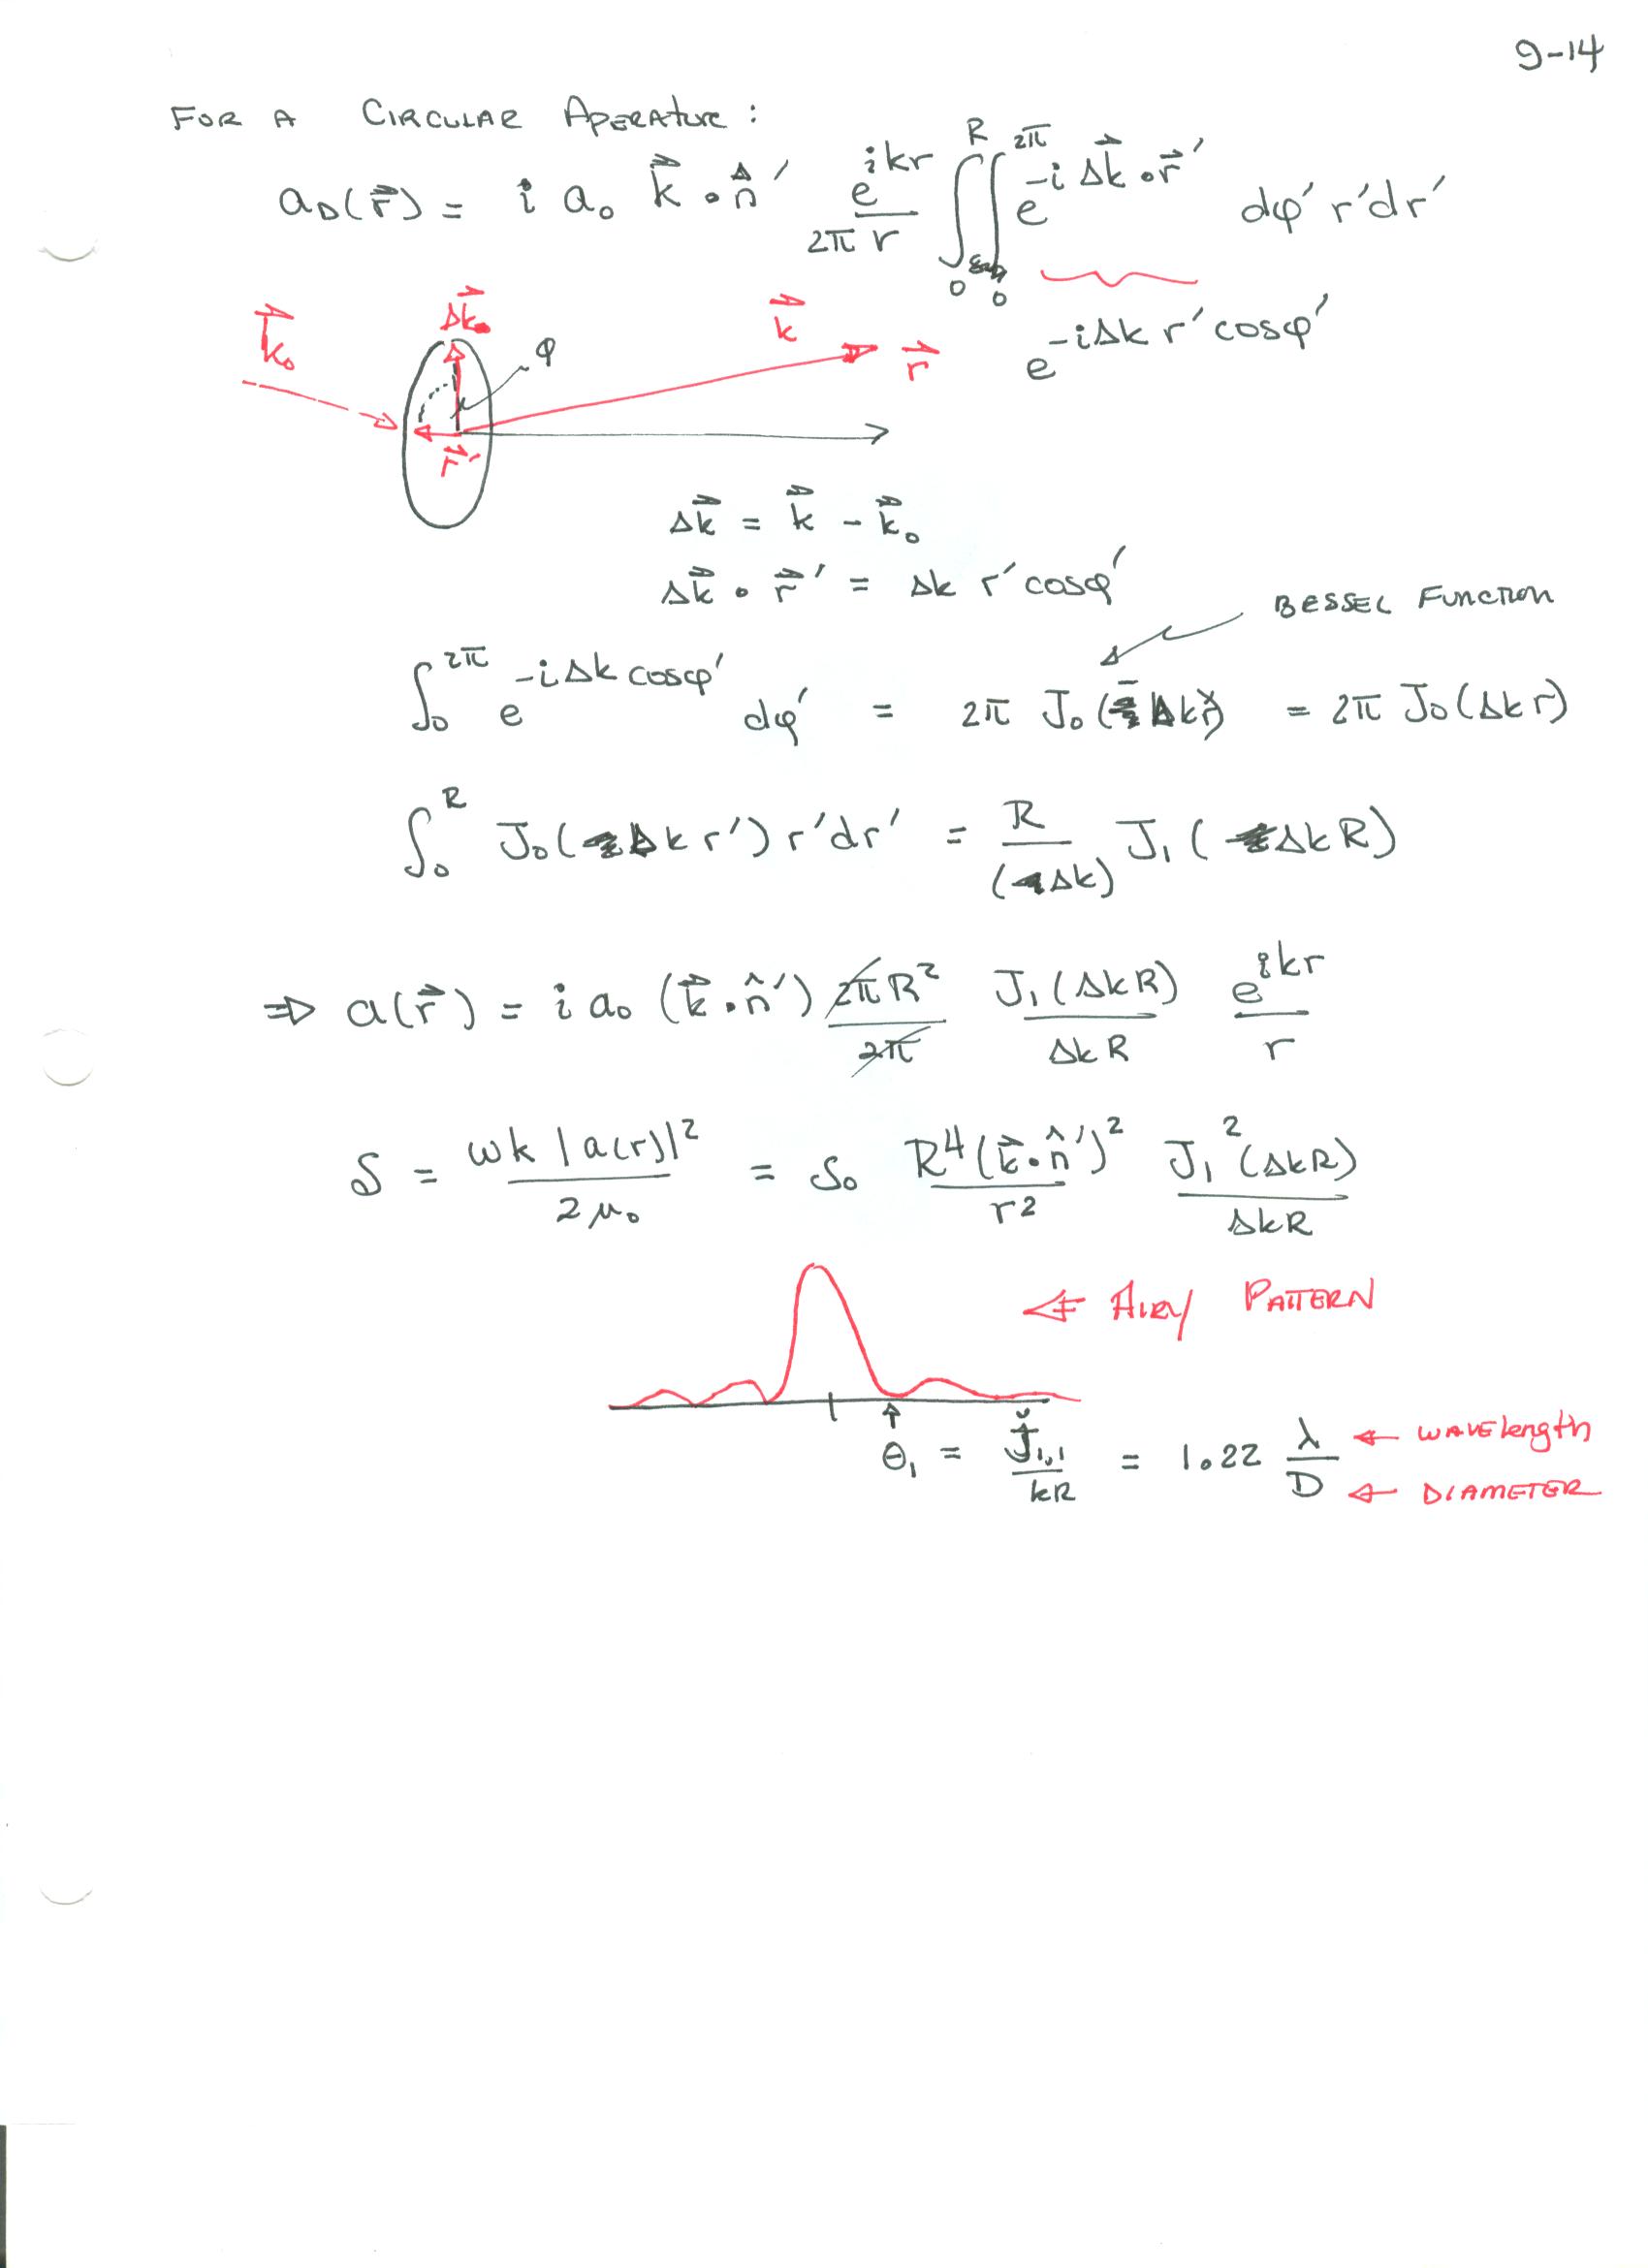 9-14
FOR A CIRCULAR APERATURE:
a_D(r⃗) = i a₀ k⃗ · n̂′ e^{ikr}/(2π r) ∫₀^R ∫₀^{2π} e^{-i Δk⃗ · r⃗′} dφ′ r′dr′
e^{-iΔk r′ cosφ′}
k⃗₀ Δk⃗ φ k⃗ r⃗
r⃗′
Δk⃗ = k⃗ - k⃗₀
Δk⃗ · r⃗′ = Δk r′ cosφ′
BESSEL FUNCTION
∫₀^{2π} e^{-iΔk cosφ′} dφ′ = 2π J₀(-Δkr) = 2π J₀(Δkr)
∫₀^R J₀(Δk r′) r′dr′ = R/(Δk) J₁(ΔkR)
⇒ a(r⃗) = i a₀ (k⃗ · n̂′) 2πR²/2π J₁(ΔkR)/ΔkR e^{ikr}/r
S = ωk |a(r)|²/2μ₀ = S₀ R⁴(k⃗ · n̂′)²/r² J₁²(ΔkR)/ΔkR
← AIRY PATTERN
θ₁ = J₁,₁/kR = 1.22 λ/D ← WAVELENGTH
← DIAMETER